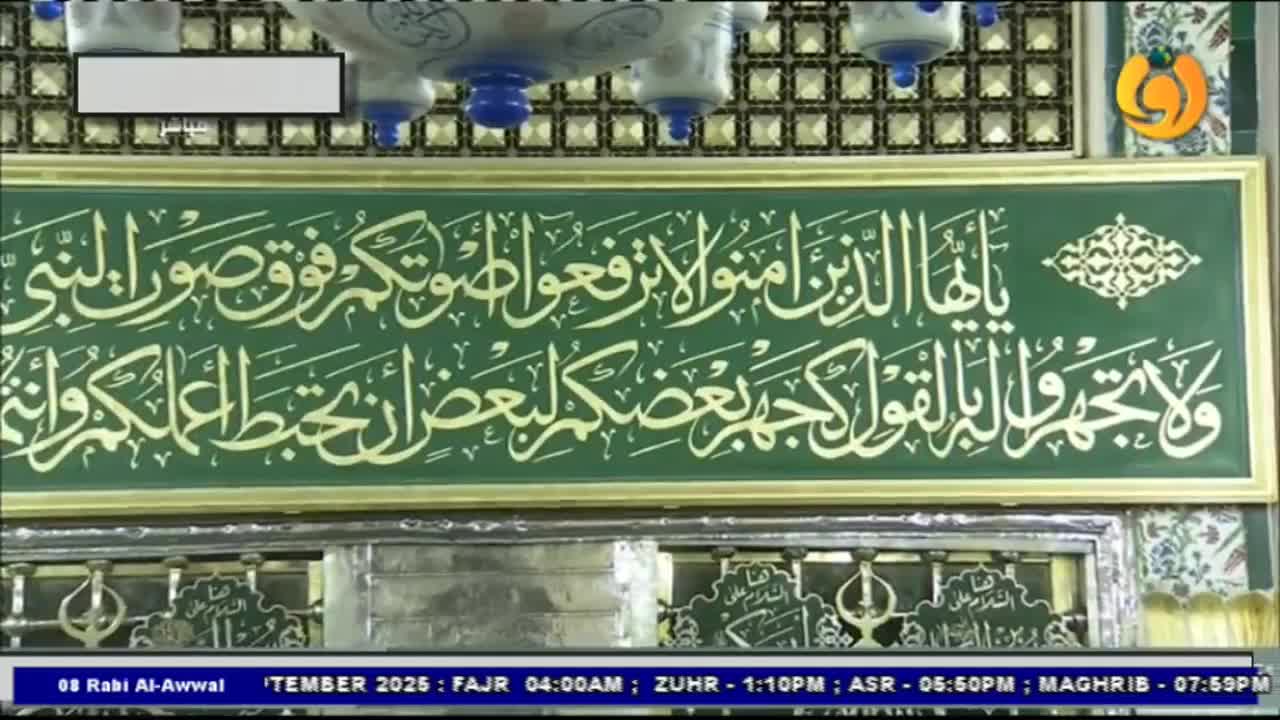 مباشر
يأيها الذين امنوا لا ترفعوا أصوتكم فوق صوت النبي
ولا تجهروا له بالقول كجهر بعضكم لبعض أن تحبط أعملكم وأنتم
هنا السلام على
هنا السلام على
هنا السلام على
08 Rabi Al-Awwal
TEMBER 2025 : FAJR 04:00AM ; ZUHR - 1:10PM ; ASR - 05:50PM ; MAGHRIB - 07:59PM